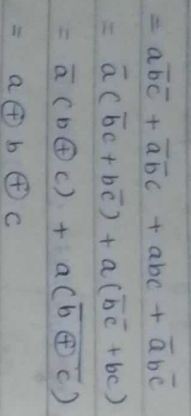 = ab̅c̅ + a̅b̅c + abc + a̅bc̅
= a̅(b̅c + bc̅) + a(b̅c̅ + bc)
= a̅(b ⊕ c) + a(b̅ ⊕̅ c̅)
= a ⊕ b ⊕ c